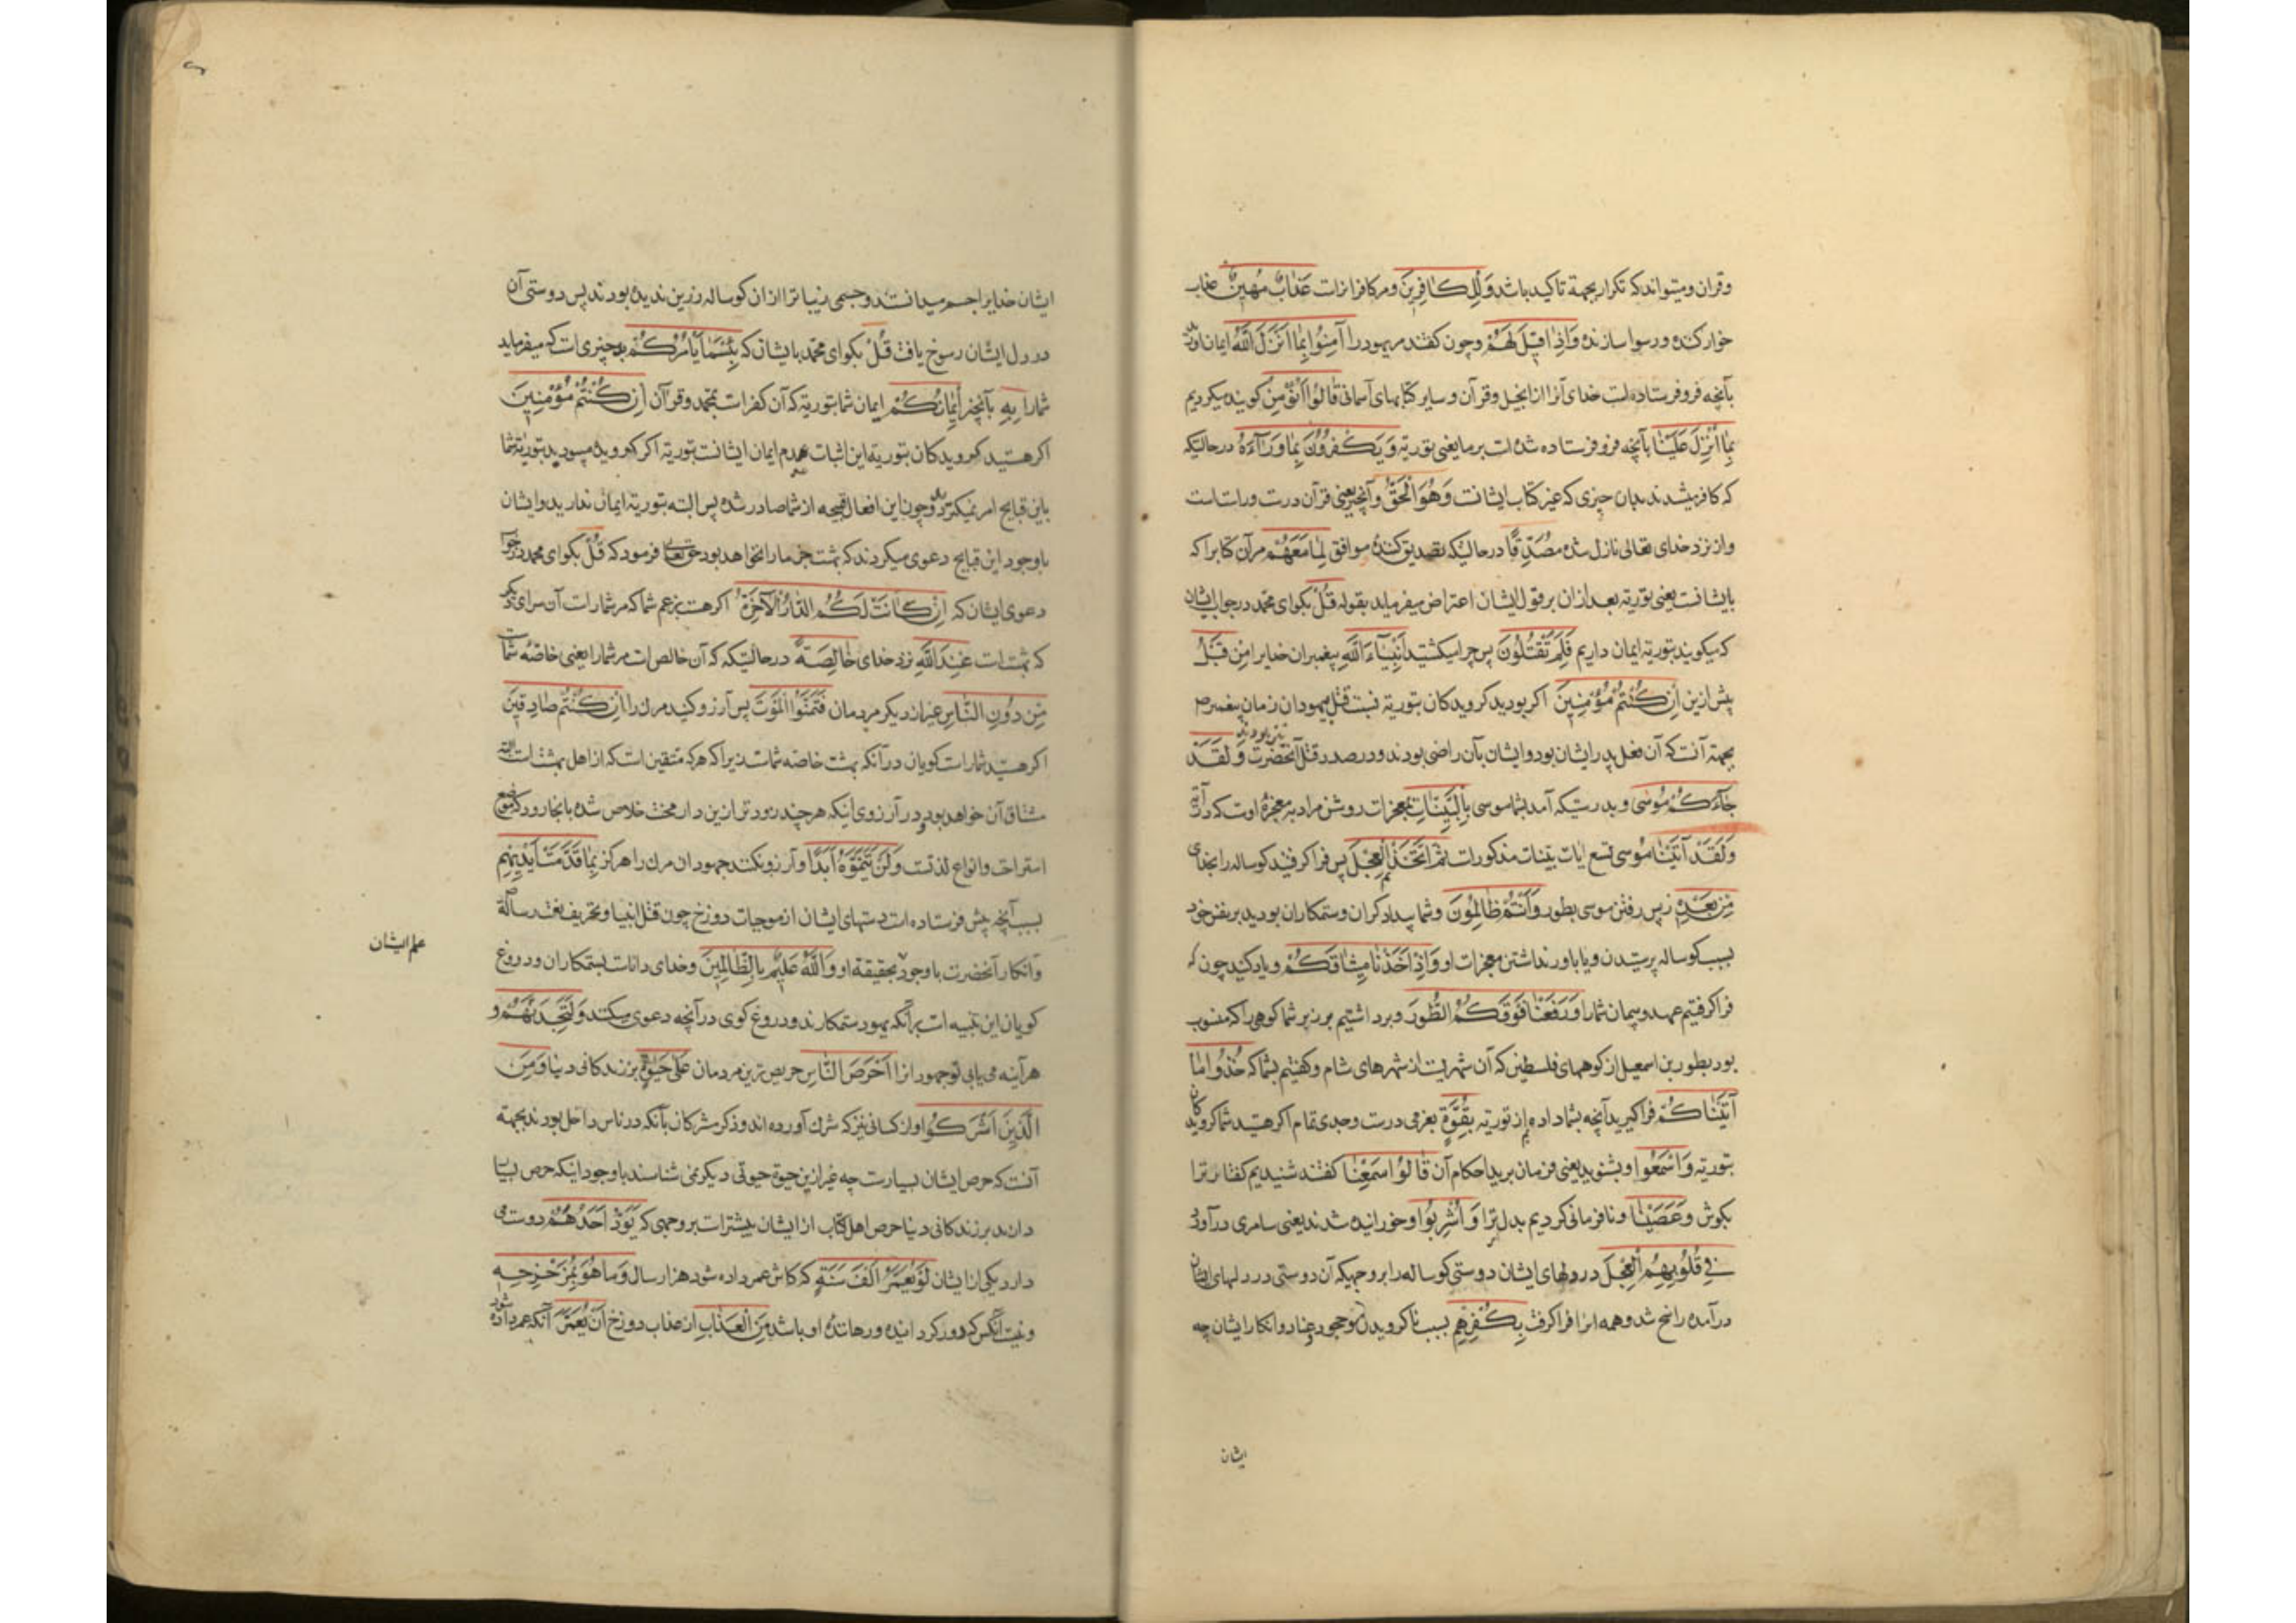 وقران ومیتواند که تکرار بجهة تاکید باشد وَلِلْكَافِرِينَ ومر کافرانرات عَذَابٌ مُهِينٌ عذاب
خوار کننده ورسوا سازنده وَاِذَا قِيلَ لَهُمْ وچون گفتند مر یهود را آمِنُوا بِمَا اَنْزَلَ اللّٰهُ ایمان
بآنچه فرو فرستاده است خدای آنرا از انجیل وقرآن وسایر کتابهای آسمانی قَالُوا نُؤْمِنُ کویند میکرویم
بِمَا اُنْزِلَ عَلَيْنَا بآنچه فرو فرستاده شده است بر ما یعنی بتوریة وَيَكْفُرُونَ بِمَا وَرَآءَهُ در حالتیکه
که کافر میشدند بدان چیزی که غیر کتاب ایشانست وَهُوَ الْحَقُّ وآنچیز یعنی قرآن درست وراستست
واز نزد خدای تعالی نازل شده مُصَدِّقًا در حالتیکه تصدیق کننده موافق لِمَا مَعَهُمْ مر آن کتابرا که
بایشانست یعنی توریة بعد ازان بر قول ایشان اعتراض میفرماید بقوله قُلْ بکو ای محمد در جواب ایشان
که میکویند بتوریة ایمان داریم فَلِمَ تَقْتُلُونَ پس چرا میکشتید اَنْبِيَآءَ اللّٰهِ پیغمبران خدایرا مِنْ قَبْلُ
پیش ازین اِنْ كُنْتُمْ مُؤْمِنِينَ اکر بودید کرویدکان بتوریة نسبت قتل بیهودان زمان پیغمبر ص
بجهة آنست که آن فعل پدر ایشان بود وایشان بآن راضی بودند ودر صدد قتل آنحضرت نیز بودند وَلَقَدْ
جَآءَكُمْ مُوسٰى وبدرستیکه آمد بشما موسی بِالْبَيِّنَاتِ بمعجزات روشن مراد به معجزهٔ اوست که در آیة
وَلَقَدْ آتَيْنَا مُوسٰی تسع ایات بینات مذکورات ثُمَّ اتَّخَذْتُمُ الْعِجْلَ پس فرا کرفتید کوساله را بخدای
مِنْ بَعْدِهِ از پس رفتن موسی بطور وَاَنْتُمْ ظَالِمُونَ وشما بیدادکران وستمکاران بودید بر نفس خود
بسبب کوساله پرستیدن ویا باور نداشتن معجزات او وَاِذْ اَخَذْنَا مِيثَاقَكُمْ ویاد کنید چون که
فرا کرفتیم عهد وپیمان شمارا وَرَفَعْنَا فَوْقَكُمُ الطُّورَ وبرداشتیم بر زبر شما کوهی را که منسوب
بود بطور بن اسمعیل از کوههای فلسطین که آن شهریست از شهرهای شام وکفتیم بشما که خُذُوا مَا
آتَيْنَاكُمْ فرا کیرید آنچه بشما داده ایم از توریة بِقُوَّةٍ بعزمی درست وجدی تمام اکر هستید شما کرویدکان
بتوریة وَاسْمَعُوا وبشنوید یعنی فرمان برید احکام آن قَالُوا سَمِعْنَا کفتند شنیدیم کفتار ترا
بکوش وَعَصَيْنَا ونافرمانی کردیم بدل ترا وَاُشْرِبُوا وخورانیده شدند یعنی سامری در آورد
فِي قُلُوبِهِمُ الْعِجْلَ در دلهای ایشان دوستی کوساله را بر وجهیکه آن دوستی در دلهای ایشان
در آمده راسخ شد وهمه انرا فرا کرفت بِكُفْرِهِمْ بسبب ناکرویدن وجحود وعناد وانکار ایشان چه
ایشان
ایشان خدایرا جسم میدانستند وجسمی زیباتر از ان کوساله زرین ندیده بودند پس دوستی آن
در دل ایشان رسوخ یافت قُلْ بکو ای محمد بایشان که بِئْسَمَا يَأْمُرُكُمْ بد چیزیست که میفرماید
شمارا بِهِ بآنچیز اِيمَانُكُمْ ایمان شما بتوریة که آن کفرست بمحمد وقرآن اِنْ كُنْتُمْ مُؤْمِنِينَ
اکر هستید کرویدکان بتوریة این اثبات عدم ایمان ایشانست بتوریة اکر کرویده میبودید بتوریة شما
باین قبایح امر نمیکرد وچون این افعال قبیحه از شما صادر شده پس البته بتوریة ایمان ندارید وایشان
باوجود این قبایح دعوی میکردند که بهشت جز مارا نخواهد بود حق تعالی فرمود که قُلْ بکو ای محمد در جواب
دعوی ایشان که اِنْ كَانَتْ لَكُمُ الدَّارُ الْآخِرَةُ اکر هست بزعم شما که مر شماراست آن سرای دیکر
که بهشتست عِنْدَ اللّٰهِ نزد خدای خَالِصَةً در حالتیکه که آن خالص است مر شمارا یعنی خاصهٔ شماست
مِنْ دُونِ النَّاسِ غیر از دیکر مردمان فَتَمَنَّوُا الْمَوْتَ پس آرزو کنید مرك را اِنْ كُنْتُمْ صَادِقِينَ
اکر هستید شما راست کویان در آنکه بهشت خاصه شماست زیرا که هرکه متقین است که از اهل بهشتست البته
مشتاق آن خواهد بود ودر آرزوی اینکه هرچند زودتر ازین دار محنت خلاص شده بانجا رود که موضع
استراحت وانواع لذتست وَلَنْ يَتَمَنَّوْهُ اَبَدًا وآرزو نکنند جهودان مرك را هرکز بِمَا قَدَّمَتْ اَيْدِيهِمْ
بسبب آنچه پیش فرستاده است دستهای ایشان از موجبات دوزخ چون قتل انبیا وتحریف نعت رسالة
وانکار آنحضرت باوجود بحقیقة او وَاللّٰهُ عَلِيمٌ بِالظَّالِمِينَ وخدای داناست بستمکاران ودروغ
علم ایشان
کویان این تنبیه است برآنکه یهود ستمکارند ودروغ کوی در آنچه دعوی میکنند وَلَتَجِدَنَّهُمْ و
هرآینه می یابی تو جهودانرا اَحْرَصَ النَّاسِ حریص ترین مردمان عَلٰى حَيٰوةٍ بر زندکانی دنیا وَمِنَ
الَّذِينَ اَشْرَكُوا واز کسانی نیز که شرك آورده اند وذکر مشرکان بآنکه در ناس داخل بودند بجهة
آنست که حرص ایشان بسیارست چه غیر ازین حیوة حیوتی دیکر نمی شناسند باوجود اینکه حرص بسیار
دارند بر زندکانی دنیا حرص اهل کتاب از ایشان بیشترست بر وجهی که يَوَدُّ اَحَدُهُمْ دوست می
دارد یکی از ایشان لَوْ يُعَمَّرُ اَلْفَ سَنَةٍ که کاش عمر داده شود هزار سال وَمَا هُوَ بِمُزَحْزِحِهِ
ونیست آنکس که دور کرداننده ورهاننده او باشد مِنَ الْعَذَابِ از عذاب دوزخ اَنْ يُعَمَّرَ آنکه عمر داده شود